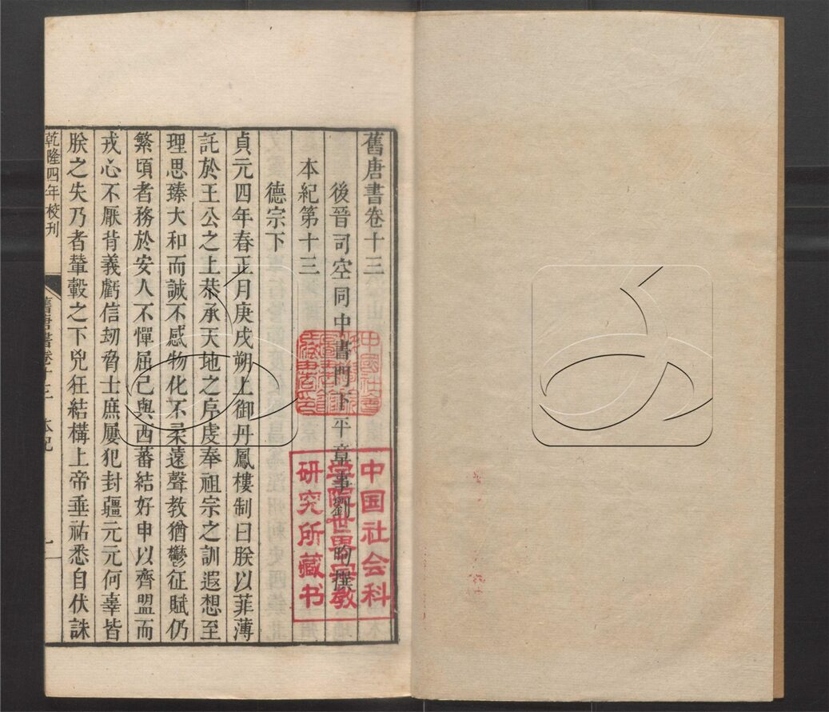 舊唐書卷十三
後晉司空同中書門下平章事劉昫撰
本紀第十三
德宗下
貞元四年春正月庚戌朔上御丹鳳樓制曰朕以菲薄
託於王公之上恭承天地之序虔奉祖宗之訓遐想至
理思臻大和而誠不感物化不柔遠聲教猶鬱征賦仍
繁頃者務於安人不憚屈己與西蕃結好申以齊盟而
戎心不厭背義虧信劫脅士庶屢犯封疆元元何辜皆
朕之失乃者輦轂之下兇狂結構上帝垂祐悉自伏誅
乾隆四年校刊
舊唐書卷十三 本紀 一
中国社会科
学院世界宗教
研究所藏书